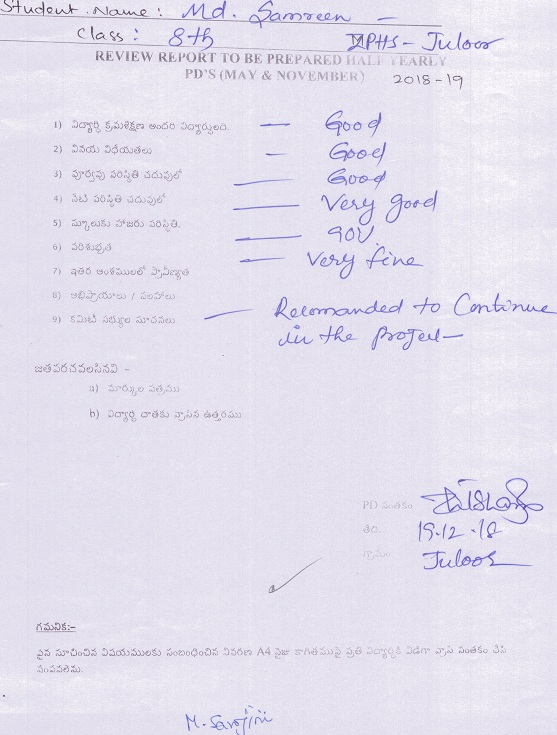 Student Name : Md. Samreen —
Class : 8th ZPHS - Juloor
REVIEW REPORT TO BE PREPARED HALF YEARLY
PD'S (MAY & NOVEMBER) 2018-19
1) విద్యార్థి క్రమశిక్షణ అందరి విద్యార్థులది. — Good
2) వినయ విధేయతలు — Good
3) పూర్వపు పరిస్థితి చదువులో — Good
4) నేటి పరిస్థితి చదువులో — Very good
5) స్కూలుకు హాజరు పరిస్థితి. —
6) పరిశుభ్రత — Very fine
7) ఇతర అంశములలో ప్రావీణ్యత
8) అభిప్రాయాలు / సలహాలు
9) కమిటి సభ్యుల సూచనలు — Recomanded to Continue
in the Project—
జతపరచవలసినవి :-
a) మార్కుల పత్రము
b) విద్యార్థి దాతకు వ్రాసిన ఉత్తరము
PD సంతకం
తేది. 19.12.18
గ్రామం Juloor
గమనిక:-
పైన సూచించిన విషయములకు సంబంధించిన వివరణ A4 సైజు కాగితముపై ప్రతి విద్యార్థికి విడిగా వ్రాసి సంతకం చేసి
పంపవలెను.
M. Sarojini